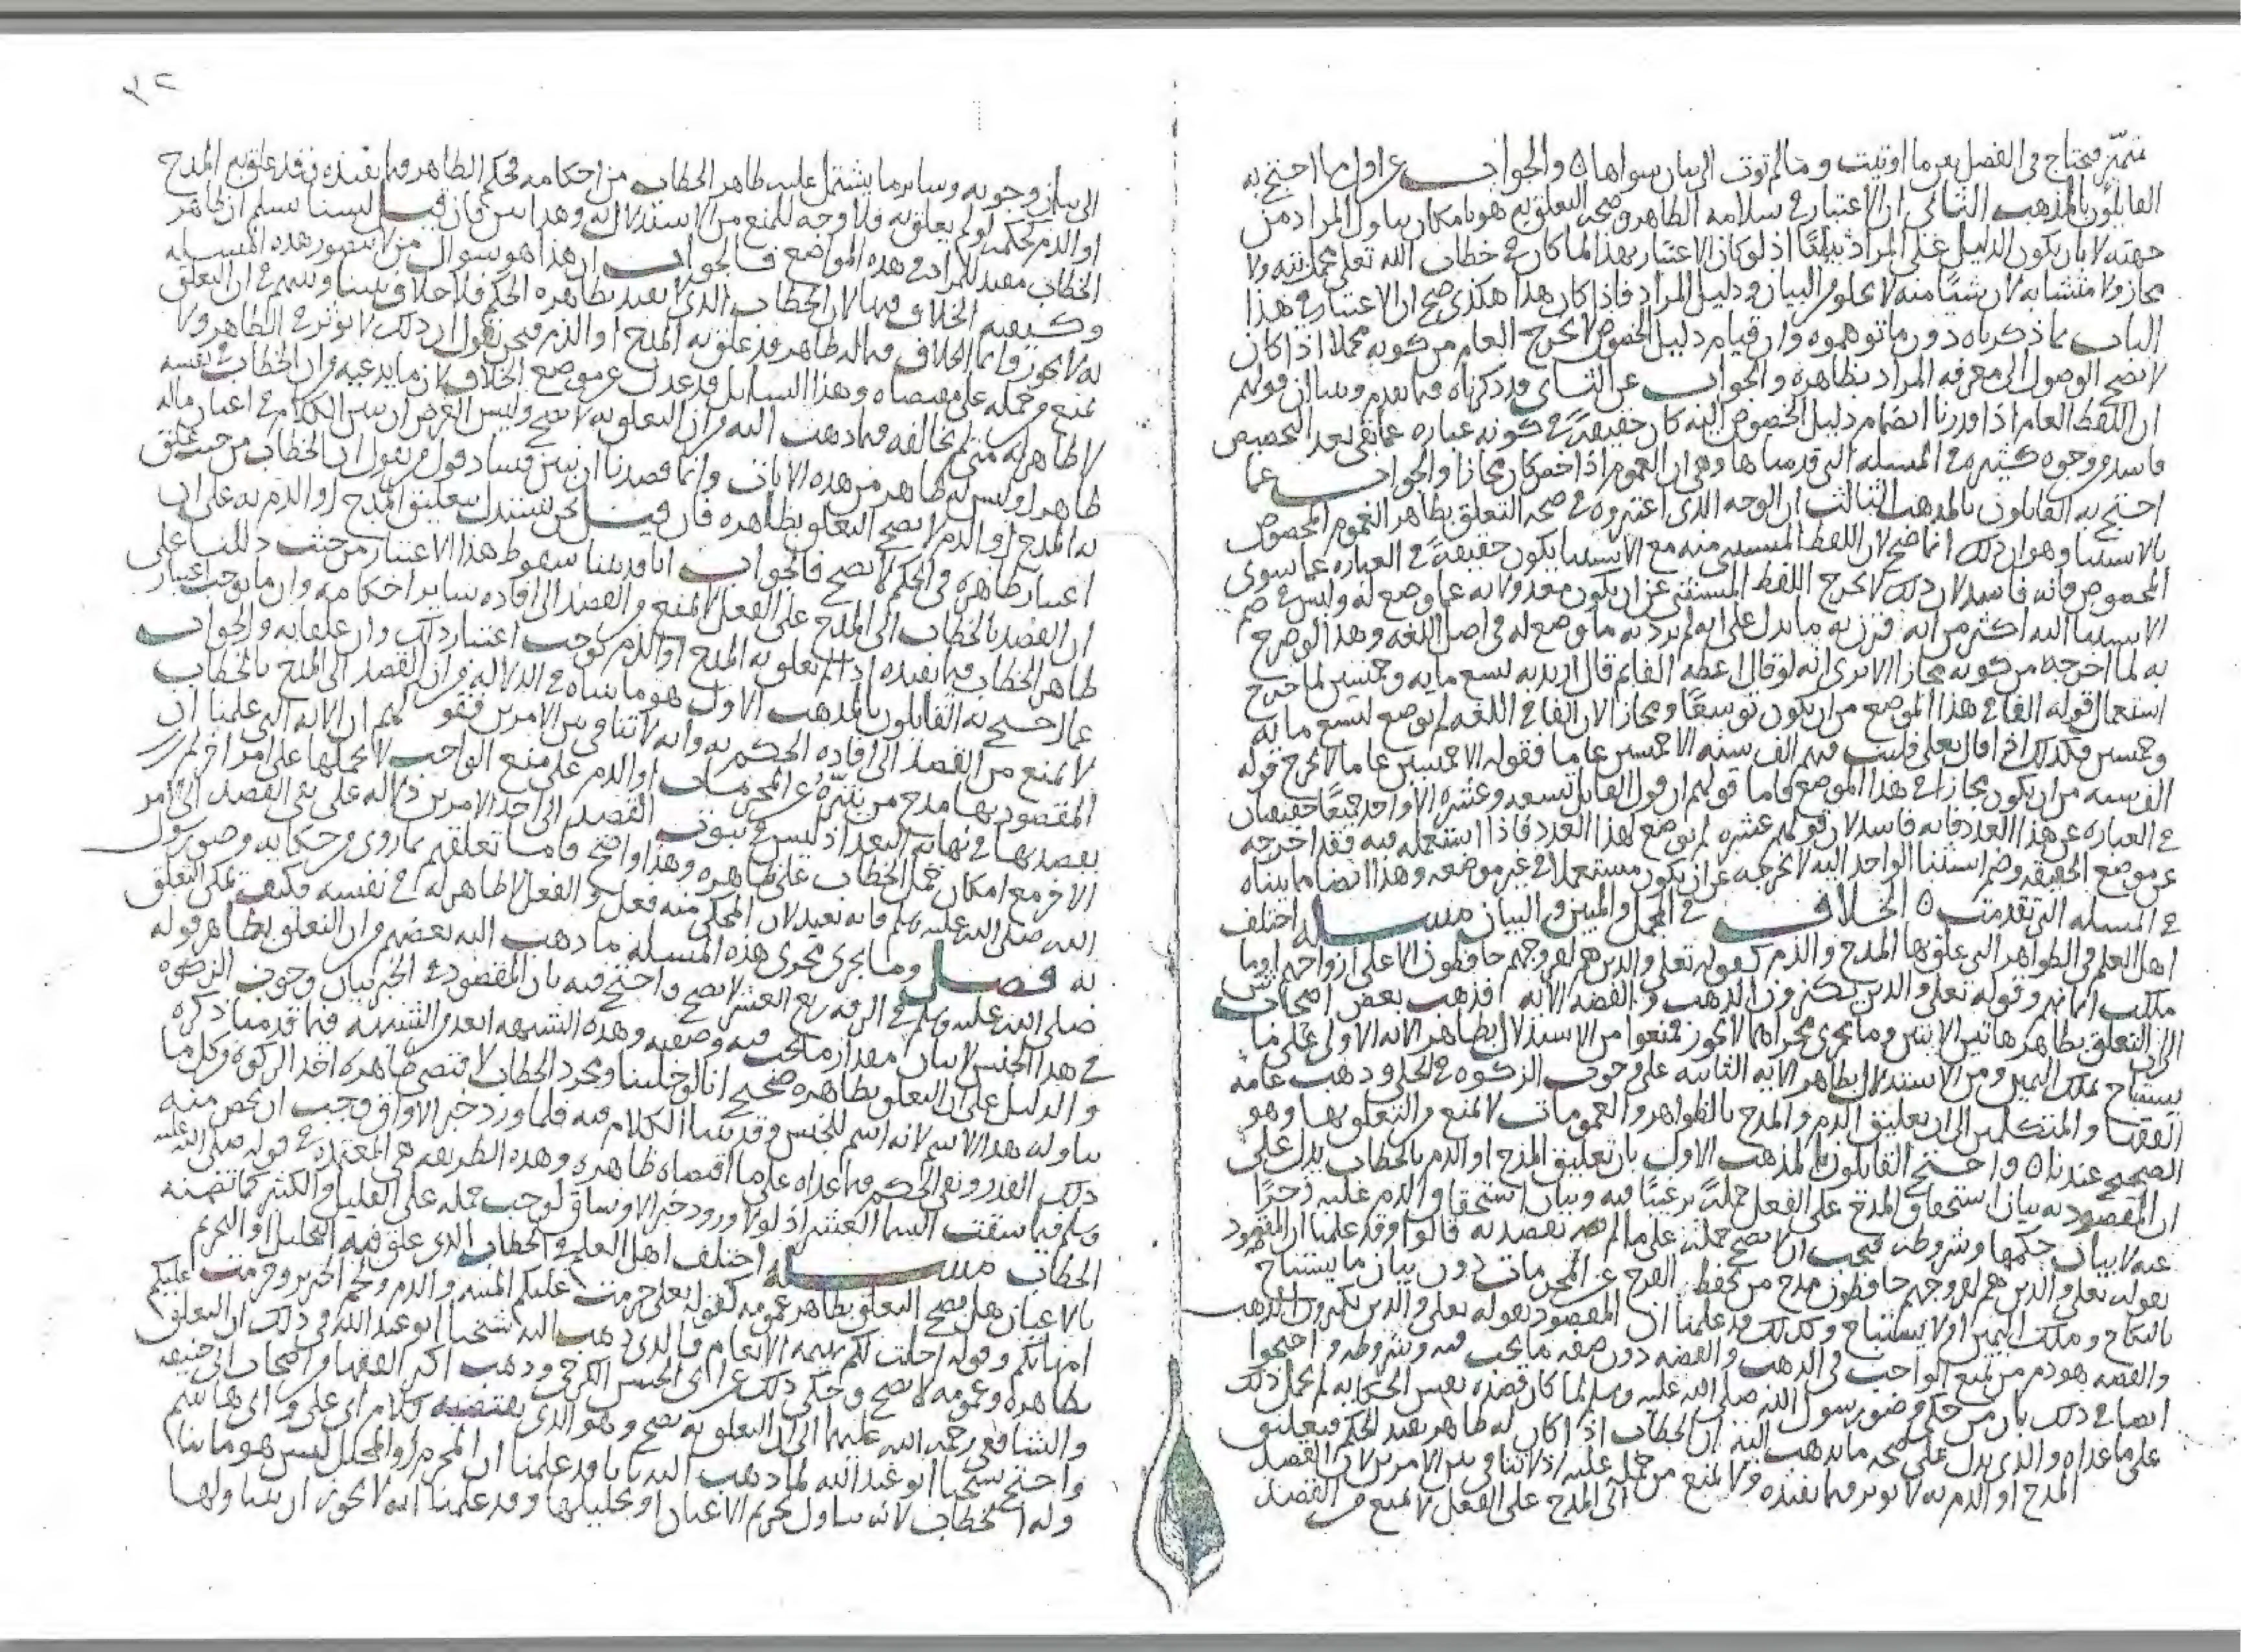 فتحتاج في الفصل بين ما اوتيت وما لم توت الى بيان سواها ٥ والجواب عن اول ما احتج به
القايلون بالمذهب الثاني ان الاعتبار في سلامه الظاهر وصحه التعلق به هو بامكان تناول المراد من
جهته لا بان يكون الدليل على المراد اذ لو كان الاعتبار بهذا لما كان في خطاب الله تعلى مجمل ولا
مجاز ولا متشابه لان شيا منه لا يخلو من البيان ودليل المراد فاذا كان هذا هكذى صح ان الاعتبار في هذا
الباب بما ذكرناه دون ما توهموه وان قيام دليل الخصوص لا يخرج العام من كونه مجملا اذا كان
لا يصح الوصول الى معرفه المراد بظاهره والجواب عن الثاني قد ذكرناه فيما تقدم وبينا ان قولهم
ان اللفظ العام اذا قدرنا انضمام دليل الخصوص اليه كان حقيقة في كونه عباره عما بقي بعد التخصيص
فاسد من وجوه كثيره في المسله التي قدمناها وهي ان العموم اذا خص كان مجازا والجواب عما
احتج به القايلون بالمذهب الثالث ان الوجه الذي اعتبروه في صحه التعلق بظاهر العموم المخصوص
بالاستثنا وهو ان ذلك انما صح لان اللفظ المستثنى منه مع الاستثنا يكون حقيقة في العباره عما سوى
المخصوص فانه فاسد لان ذلك لا يخرج اللفظ المستثنى عن ان يكون معدولا به عما وضع له وليس في ضم
الاستثنا اليه اكثر من انه قرن به ما يدل على انه لم يرد به ما وضع له في اصل اللغه وهذا لو صرح
به لما اخرجه من كونه مجازا الا ترى انه لو قال اعطه الفا ثم قال اريد به تسع مايه وخمسين لما خرج
استعمال قوله الفا في هذا الموضع من ان يكون توسعا ومجازا لان الفا في اللغه لم يوضع لتسع مايه
وخمسين فكذلك اذا قال تعلى فلبث فيهم الف سنه الا خمسين عاما فقوله الا خمسين عاما لا يخرج قوله
الف سنه من ان يكون مجازا في هذا الموضع فاما قولهم ان قول القايل تسعه وعشره الا واحد جميعا حقيقتان
في العباره عن هذا العدد فانه فاسد لان قولهم عشره لم يوضع لهذا العدد فاذا استعمله فيه فقد اخرجه
عن موضع الحقيقه وضم استثنا الواحد اليه لا يخرجه عن ان يكون مستعملا في غير موضعه وهذا ايضا ما بيناه
في المسله التي تقدمت ٥ الخلاف في المجمل والمبين والبيان مسله اختلف
اهل العلم في الظواهر التي علق بها المدح والذم كقوله تعلى والذين هم لفروجهم حافظون الا على ازواجهم او ما
ملكت ايمانهم وقوله تعلى والذين يكنزون الذهب والفضه الايه فذهب بعض اصحاب ش
الى ان التعلق بظاهر هاتين الايتين وما يجري مجراهما لا يجوز فمنعوا من الاستدلال بظاهر الايه الاولى على ما
يستباح بملك اليمين ومن الاستدلال بظاهر الايه الثانيه على وجوب الزكوه في الحلي وذهب عامه
الفقها والمتكلمين الى ان تعليق الذم والمدح بالظواهر والعمومات لا يمنع من التعلق بها وهو
الصحيح عندنا ٥ واحتج القايلون بالمذهب الاول بان تعليق المدح او الذم بالخطاب يدل على
ان المقصود به بيان استحقاق المدح على الفعل ترغيبا فيه وبيان استحقاق الذم عليه زجرا
عنه لا بيان حكمها وشروطه فيجب ان لا يصح حمله على ما لم يقصد به قالوا وقد علمنا ان المقصود
بقوله تعلى والذين هم لفروجهم حافظون مدح من يحفظ الفرج عن المحرمات دون بيان ما يستباح
بالنكاح وملك اليمين او لا يستباح وكذلك قد علمنا ان المقصود بقوله تعلى والذين يكنزون الذهب
والفضه هو ذم من يمنع الواجب في الذهب والفضه دون صفه ما يجب فيه وشروطه واحتجوا
ايضا في ذلك بان من حكى من رسول الله صلى الله عليه وسلم لما كان قصده نفس الحكايه لم يحمل ذلك
على ما عداه والذي يدل على صحه ما نذهب اليه ان الخطاب اذا كان له ظاهر يفيد الحكم فتعليق
المدح او الذم به لا يوثر فيما يفيده ولا يمنع من حمله عليه اذ لا تنافي بين الامرين لان القصد
الى المدح على الفعل لا يمنع من القصد
الى بيان وجوبه وساير ما يشتمل عليه ظاهر الخطاب من احكامه فحكم الظاهر فيما يفيده وقد علق به المدح
او الذم كحكمه لو لم يعلق به فلا وجه للمنع من الاستدلال به وهذا بين فان قيل لسنا نسلم ان ظاهر
الخطاب مفيد للمراد في هذه المواضع فالجواب ان هذا هو سوال من لا يتصور هذه المسله
وكيفيه الخلاف فيها لان الخطاب الذي لا يفيد بظاهره الحكم فلا خلاف بيننا وبينهم في ان التعلق
به لا يجوز وانما الخلاف فيما له ظاهر قد علق به المدح او الذم فنحن نقول ان ذلك لا يوثر في الظاهر ولا
يمنع من حمله على مقتضاه وهذا السايل قد عدل عن موضع الخلاف لان ما يدعيه من ان الخطاب في نفسه
لا ظاهر له متى لم نخالفه فيما ذهب اليه من ان التعلق به لا يصح وليس الغرض ان نبين الكلام في اعيان ما له
ظاهر او ليس له ظاهر من هذه الايات وانما قصدنا ان نبين فساد قول من يقول ان الخطاب من حيث علق
به المدح او الذم لا يصح التعلق بظاهره فان قيل نحن نستدل بتعليق المدح او الذم به على ان
اعتبار ظاهره في الحكم لا يصح فالجواب انا قد بينا سقوط هذا الاعتبار من حيث دللنا على
ان القصد بالخطاب الى المدح على الفعل لا يمنع من القصد الى افاده ساير احكامه وان ما يوجب اعتبار
ظاهر الخطاب فيما يفيده اذا لم يعلق به المدح او الذم يوجب اعتبار ذلك وان علقا به والجواب
عما احتج به القايلون بالمذهب الاول هو ما بيناه في الدلاله من ان القصد الى المدح بالخطاب
لا يمنع من القصد الى افاده الحكم به وانه لا تنافي بين الامرين فقولهم ان الايه التي علمنا ان
المقصود بها مدح من يتنزه عن المحرمات او الذم على منع الواجب لا يحملها على امر اخر لم
يقصد بها في نهايه البعد اذ ليس في ثبوت القصد الى احد الامرين دلاله على نفي القصد الى الامر
الاخر مع امكان حمل الخطاب على ظاهره وهذا واضح فاما تعلقهم بما روي من حكايه رسول
الله صلى الله عليه وسلم فانه بعيد لان المحكي منه فعل والفعل لا ظاهر له في نفسه فكيف يمكن التعلق
به فصل ومما يجري مجرى هذه المسله ما ذهب اليه بعضهم من ان التعلق بظاهر قوله
صلى الله عليه وسلم في الرقه ربع العشر لا يصح واحتج فيه بان المقصود في الخبر بيان وجوب الزكوه
في هذا الجنس لا بيان مقدار ما يجب فيه وصفته وهذه الشبهه ابعد من الشبهه فيما قدمنا ذكره
والدليل على ان التعلق بظاهره صحيح انا لو خلينا ومجرد الخطاب لاقتضى ظاهره اخذ الزكوه من كل ما
تناوله هذا الاسم لانه اسم للجنس وقد بينا الكلام فيه فلما ورد خبر الاواق وجب ان يخص منه
ذلك القدر ونفي الحكم فيما عداه على ما اقتضاه ظاهره وهذه الطريقه هي المعتمده في قوله صلى الله عليه
وسلم فيما سقت السما العشر اذ لولا ورود خبر الاوساق لوجب حمله على القليل والكثير كما تضمنه
الخطاب مسله اختلف اهل العلم في الخطاب الذي علق فيه التحليل او التحريم
بالاعيان هل يصح التعلق بظاهر عمومه كقوله تعلى حرمت عليكم الميته والدم ولحم الخنزير وحرمت عليكم
امهاتكم وقوله احلت لكم بهيمه الانعام فالذي ذهب اليه شيخنا ابو عبد الله في ذلك ان التعلق
بظاهره وعمومه لا يصح وحكى ذلك عن ابي الحسن الكرخي وذهب اكثر الفقها من اصحاب ابي حنيفه
والشافعي رحمه الله عليهما الى ان التعلق به يصح وهو الذي يقتضيه كلام ابي علي وابي هاشم
واحتج شيخنا ابو عبد الله لما ذهب اليه بانا قد علمنا ان المحرم او المحلل ليس هو ما
تناوله الخطاب لانه تناول تحريم الاعيان او تحليلها وقد علمنا انه لا يجوز ان يتناولها